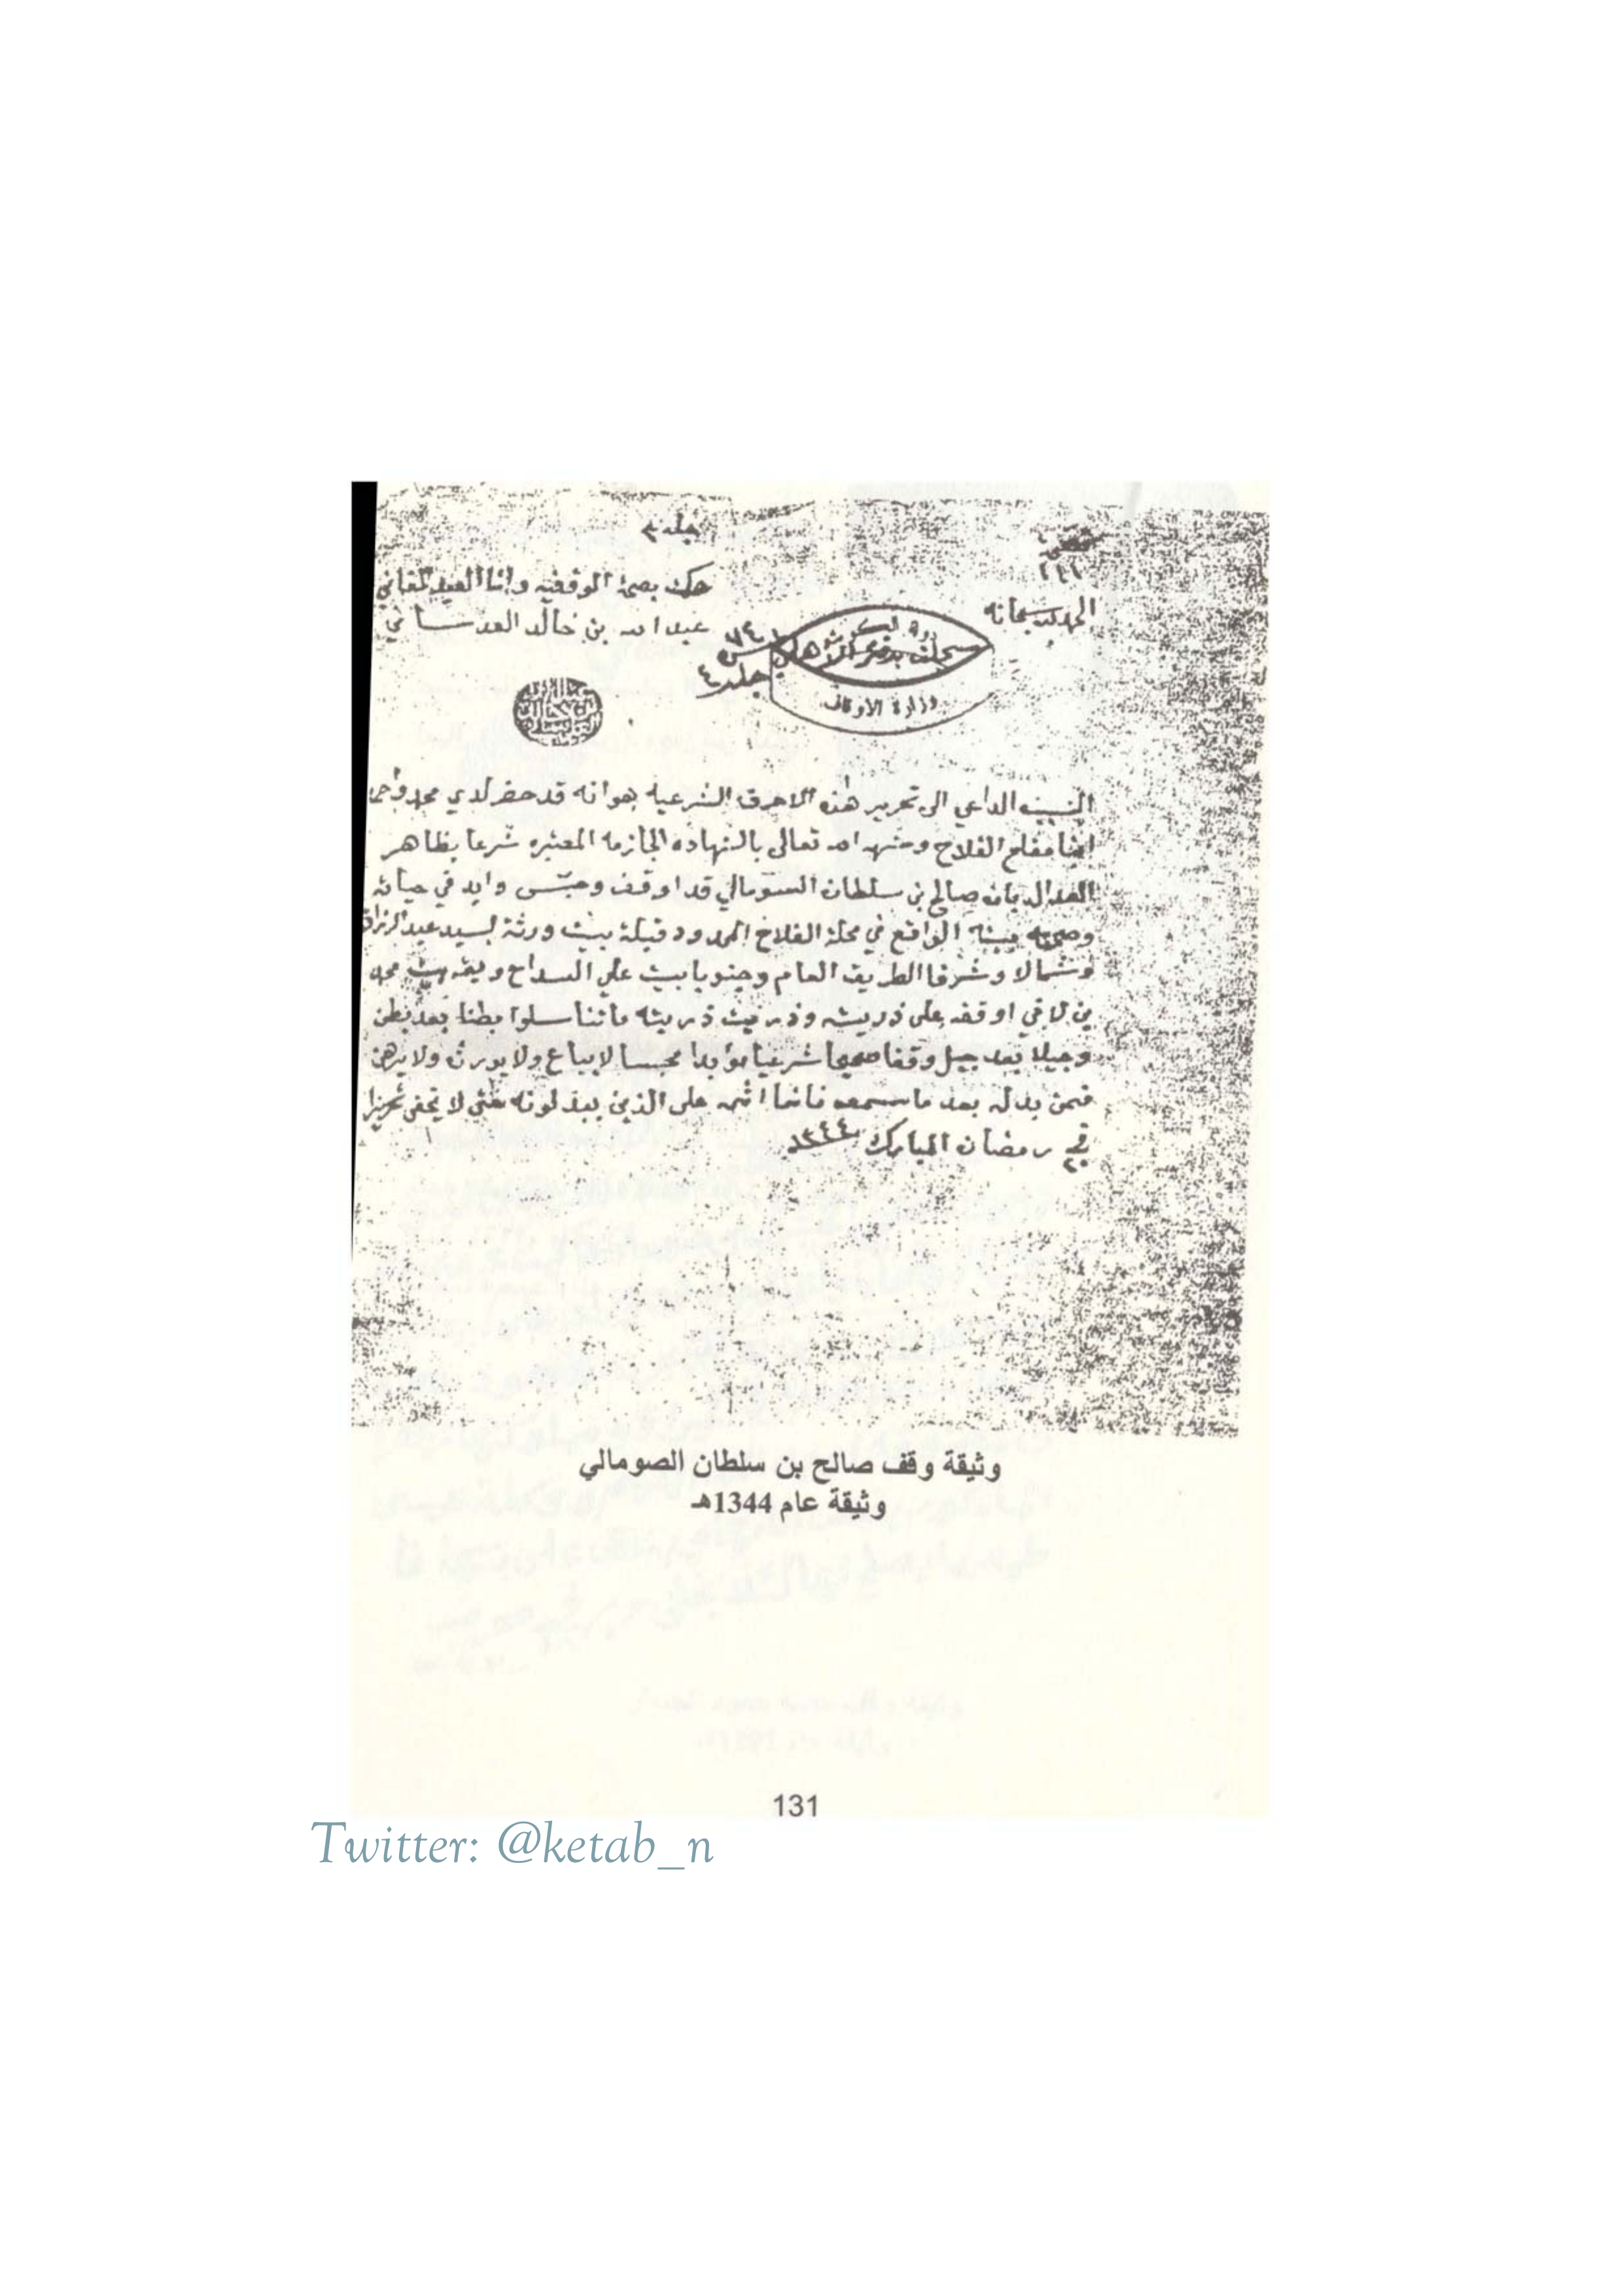 جلد ٣
الحمد لله سبحانه
حكمت بصحة الوقفيه وانا العبد الفاني
عبد الله بن خالد العدساني
٧٤
ص
جلد ٤
وزارة الاوقاف
السبب الداعي الى تحرير هذه الاحرف الشرعيه هو انه قد حضر لدي محمد واحمد
ابنا مفلح الفلاح وشهد لله تعالى بالشهاده الجازمه المعتبره شرعا بظاهر
العدال بان صالح بن سلطان السومالي قد اوقف وحبس وابد في حياته
وصحته بيته الواقع في محلة الفلاح المحدود قبلة بيت ورثة السيد عبد الرزاق
وشمالا وشرقا الطريق العام وجنوبا بيت علي السداح وبيت محمد
بن لافي اوقفه على ذريته وذريت ذريته ماتناسلوا بطنا بعد بطن
وجيلا بعد جيل وقفا صحيحا شرعيا مؤبدا محبسا لايباع ولايورث ولايرهن
فمن بدله بعد ما سمعه فانما اثمه على الذين يبدلونه حتى لا يخفى تحريرا
في ٢٠ رمضان المبارك ١٣٤٤
وثيقة وقف صالح بن سلطان الصومالي
وثيقة عام 1344هـ
131
Twitter: @ketab_n